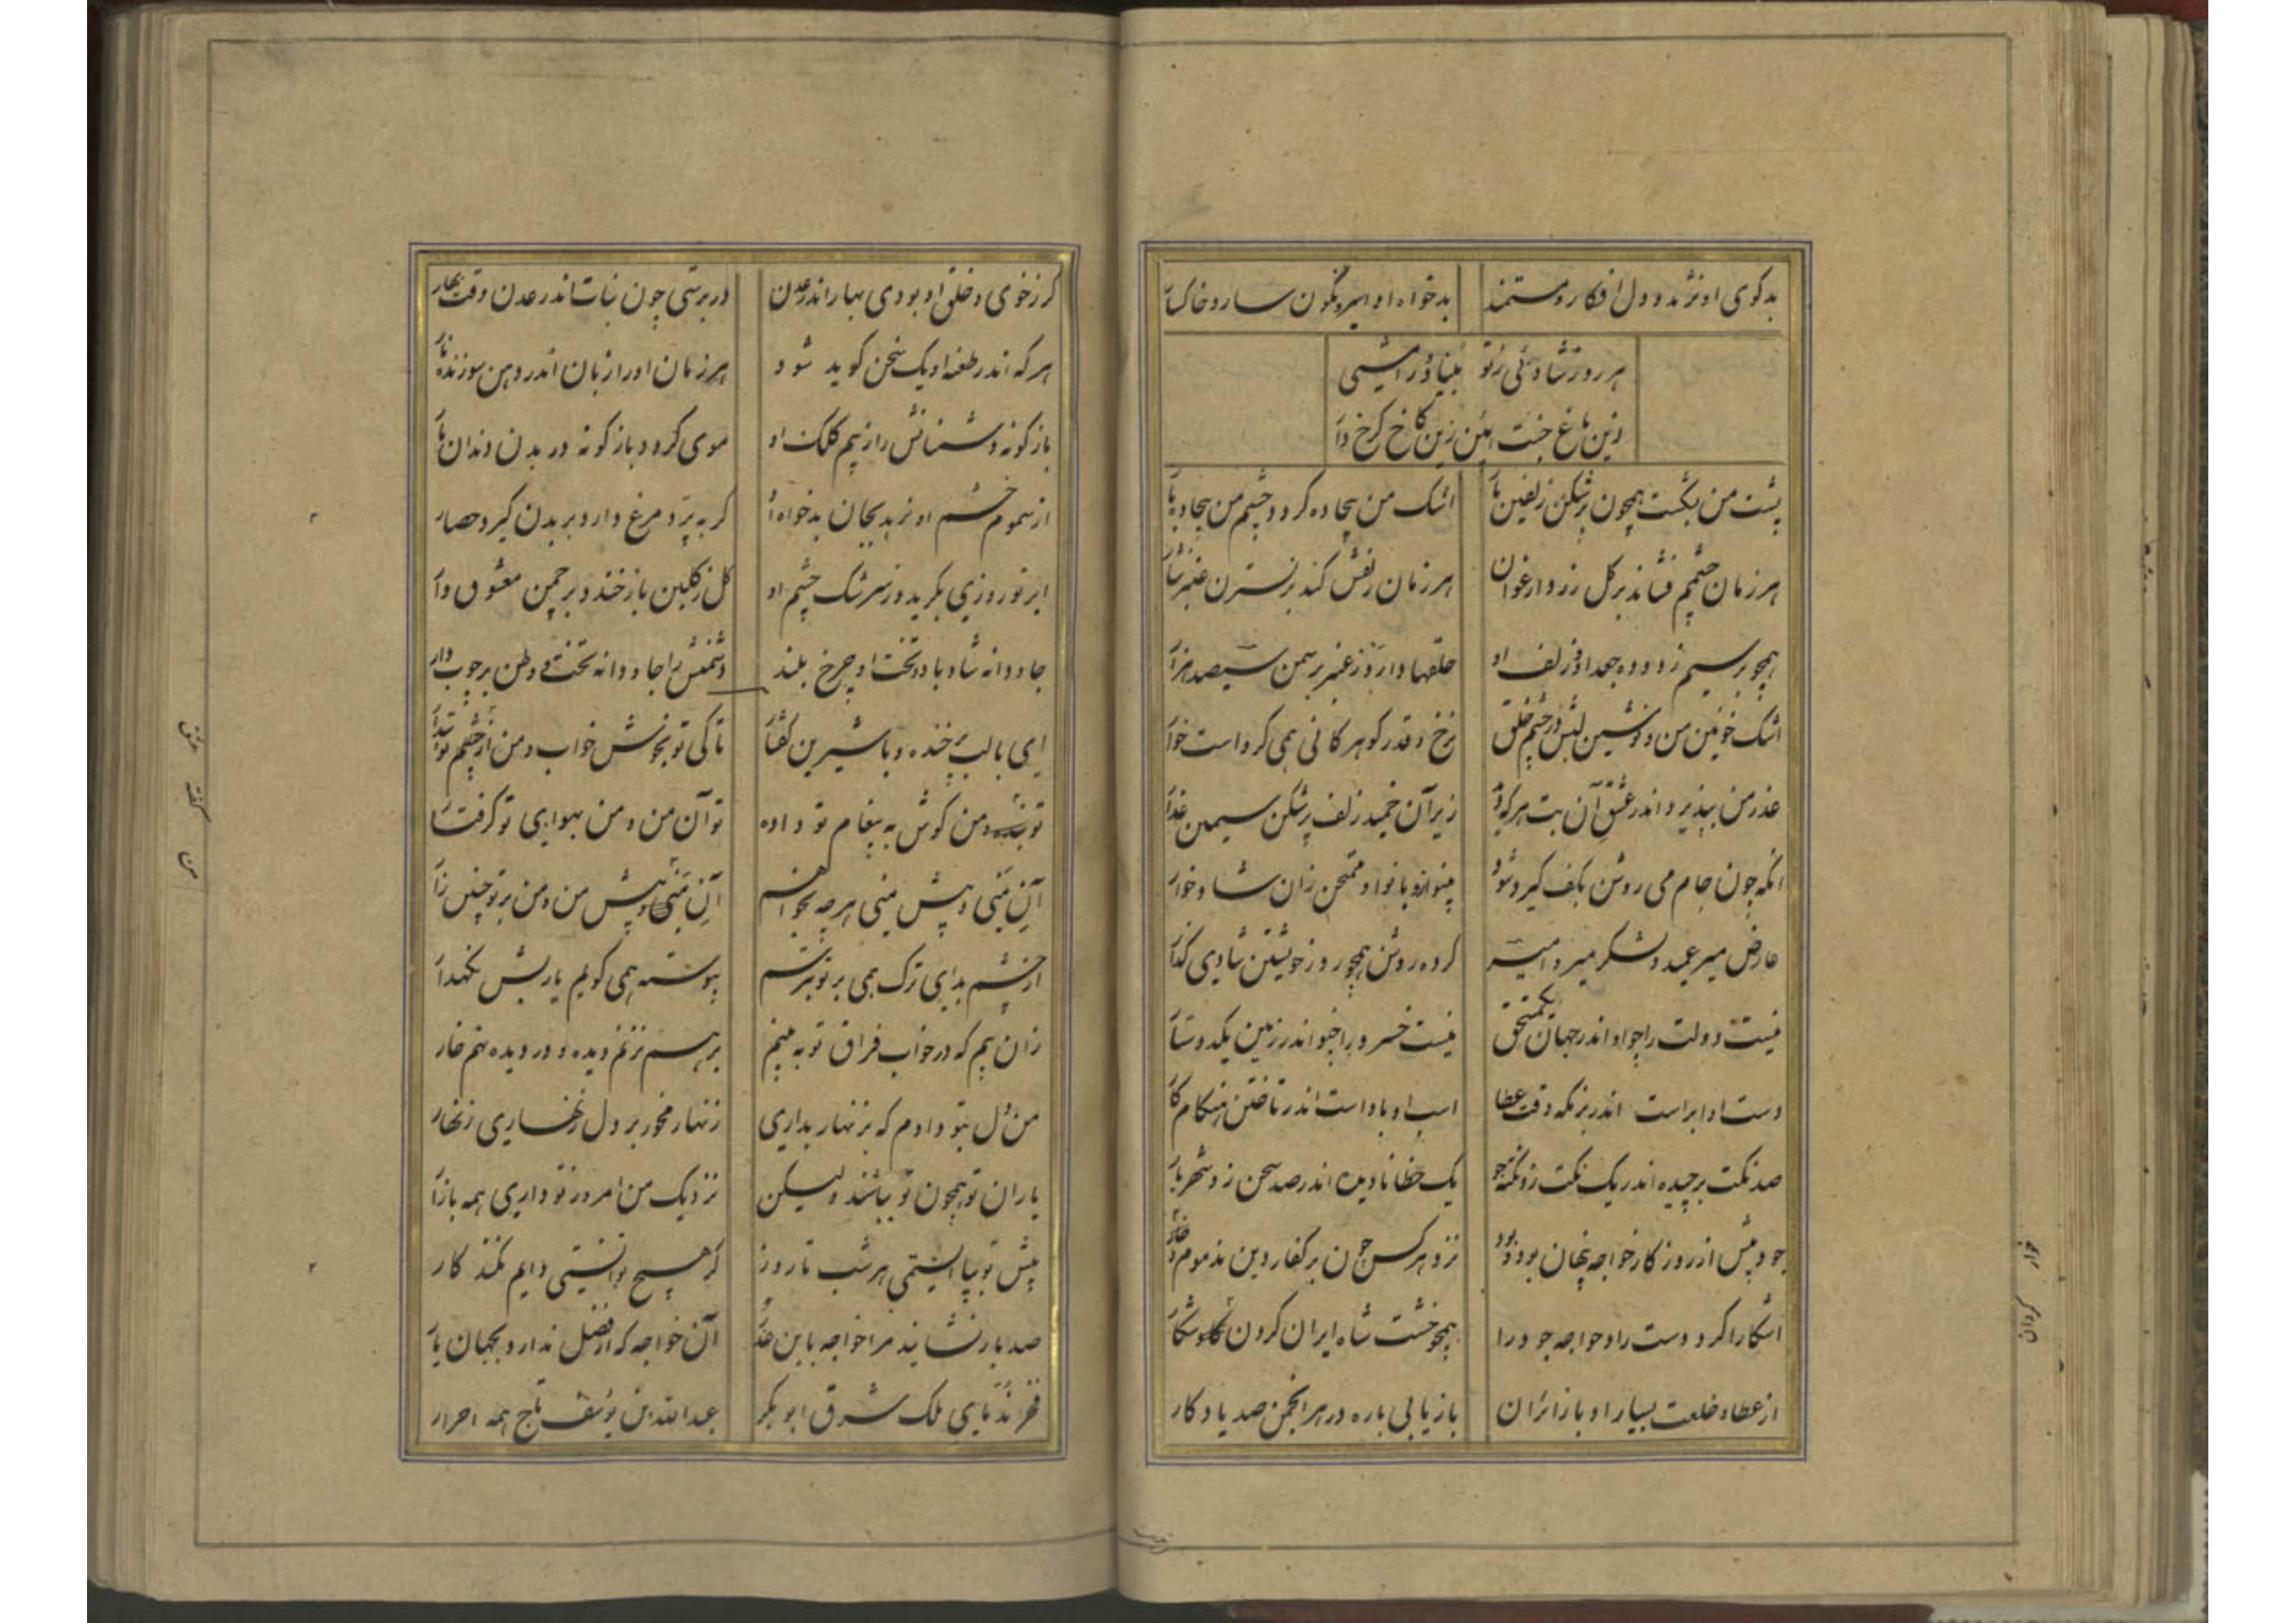 بدکوی او نژند و دل افکار و مستمند
بدخواه او اسیر و نگون سار و خاکسار
هر روز شادئی ز تو بیناد و رامشی
زین باغ جنت آیین زین کاخ کرخ وار
پشت من بشکست همچون پرشکن زلفین یار
اشک من بیجاده کرد و چشم من بیجاده بار
هر زمان چشمم فشاند بر کل زرد ارغوان
هر زمان زلفش کند بر نسترن عنبر نثار
همچو بر سیم زدوده جعد او وز زلف او
حلقها دارد ز عنبر بر سمن سیصد هزار
اشک خونین من و نوشین لبش در چشم خلق
نرخ و قدر کوهر کانی همی کرد است خوار
عذر من بپذیرد اندر عشق آن بت هر که دید
زیر آن خمیده زلف پرشکن سیمین عذار
آنکه چون جام می روشن بکف کیرد شود
بینوا زو با نوا و ممتحن زان شادخوار
عارض میر عمید و لشکر میر و امیر
کرده روشن همچو روز خویشتن شادی گذار
نیست دولت را جز او اندر جهان یک مستحق
نیست خسرو را جز او اندر زمین یک دوستار
دست او ابر است اندر بزمگه وقت عطا
اسب او باد است اندر تاختن هنکام کار
صد نکت برچیده اندر یک نکت زو نکته جو
یک خطا نادیده اندر صد سخن زو شهریار
جود پیش از روزکار خواجه پنهان بود بود
نزد هر کس چون بر کفار دین مذموم و خوار
آشکارا کرد دست راد خواجه جود را
همچو خشت شاه ایران کردن کاو شکار
از عطا و خلعت بسیار او با زائران
بازیابی باره در هر انجمن صد یادکار
کر ز خوی و خلق او بودی بهار اندر عدن
در برستی چون نبات اندر عدن وقت بهار
هر که اندر طعنه او یک سخن کوید شود
هر زمان او را زبان اندر دهن سوزنده نار
بازکونه دشمنانش را ز بیم کلک او
موی کردد بازکونه در بدن دندان مار
از سموم خشم او نرهد بجان بدخواه او
کر به پرد مرغ وار و بر بدن کیرد حصار
ابر نوروزی بکرید وز سرشک چشم او
کل ز کلبن باز خندد بر چمن معشوق وار
جاودانه شاد بادا و تخت او چرخ بلند
دشمنش را جاودانه تخته وطن بر چوب دار
ای با لب پر خنده و با شیرین کفتار
تا کی تو بخوش خواب و من از چشم تو بیدار
تو خفته و من کوش به پیغام تو داده
تو آن من و من بهوای تو کرفتار
آن منی و پیش منی هر چه بخواهم
آن منی و پیش من و من بر تو چنین زار
از چشم بد ای ترک همی بر تو بترسم
پیوسته همی کویم یا ربش نکهدار
زان بیم که در خواب فراق تو به بینم
بر هم نزنم دیده و در دیده نهم خار
من دل بتو دادم که بزنهار بداری
زنهار مخور بر دل زنهاری زنهار
یاران تو همچون تو بباشند ولیکن
نزدیک من امروز تو داری همه بازار
پیش تو بپا ایستمی هر شب تا روز
کر هیچ توانستی دایم نکند کار
صد بار نشانید مرا خواجه باین عذر
آن خواجه که از فضل ندارد بجهان یار
فخر ندمای ملک شرق ابوبکر
عبدالله بن یوسف تاج همه احرار